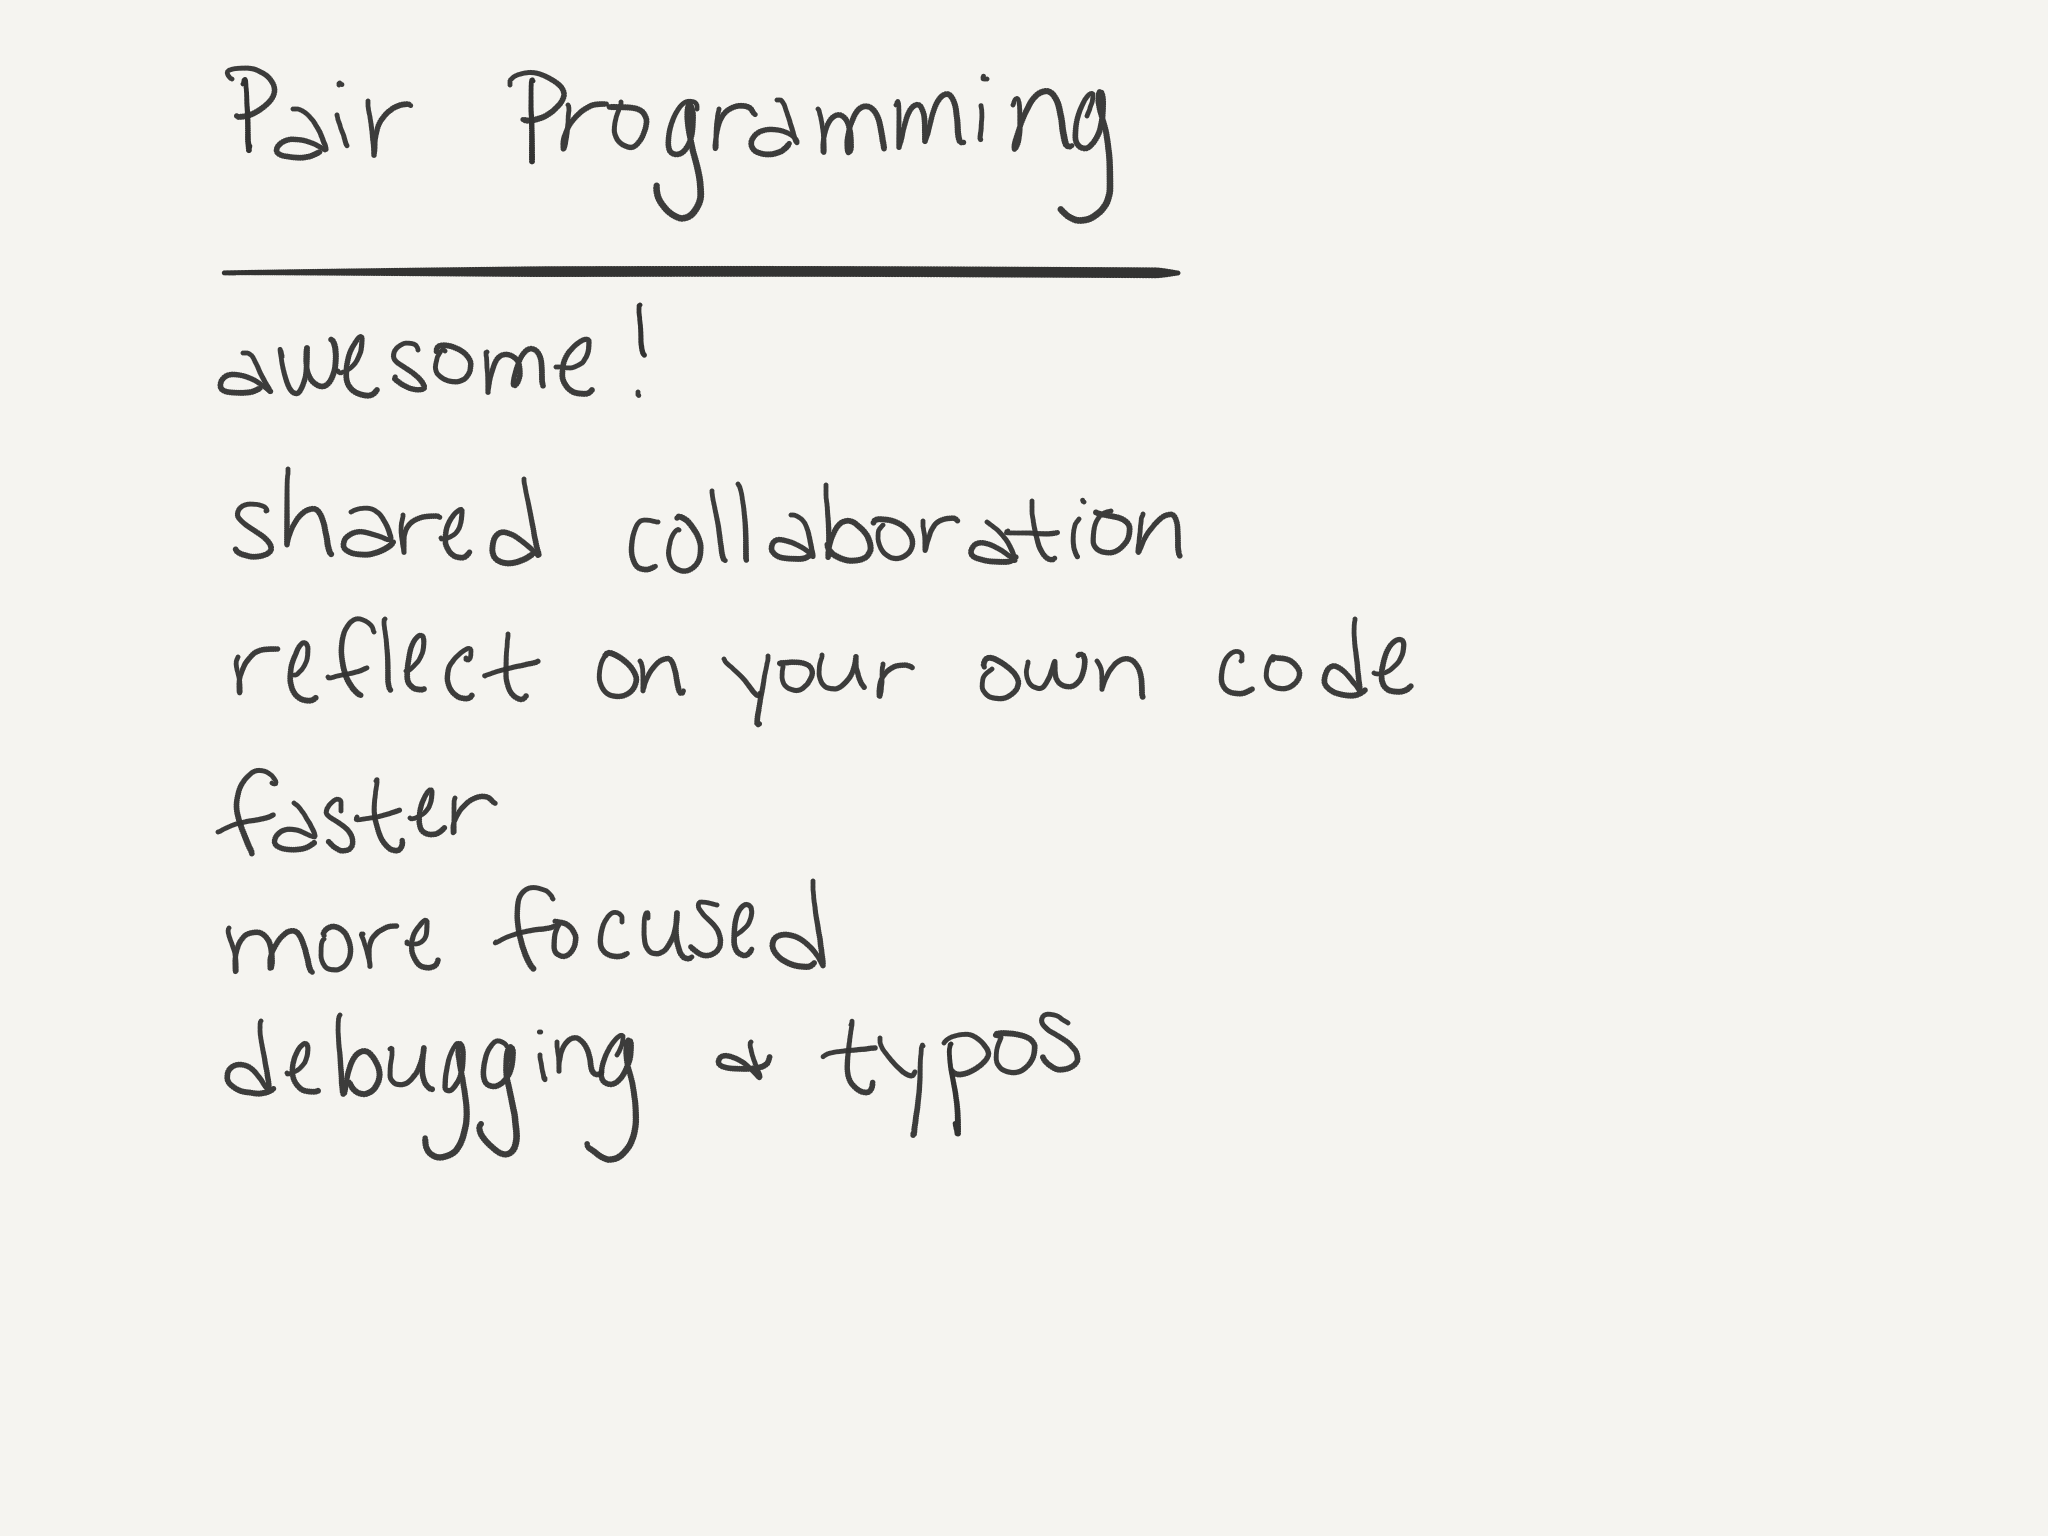 Pair Programming
awesome!
shared collaboration
reflect on your own code
faster
more focused
debugging & typos